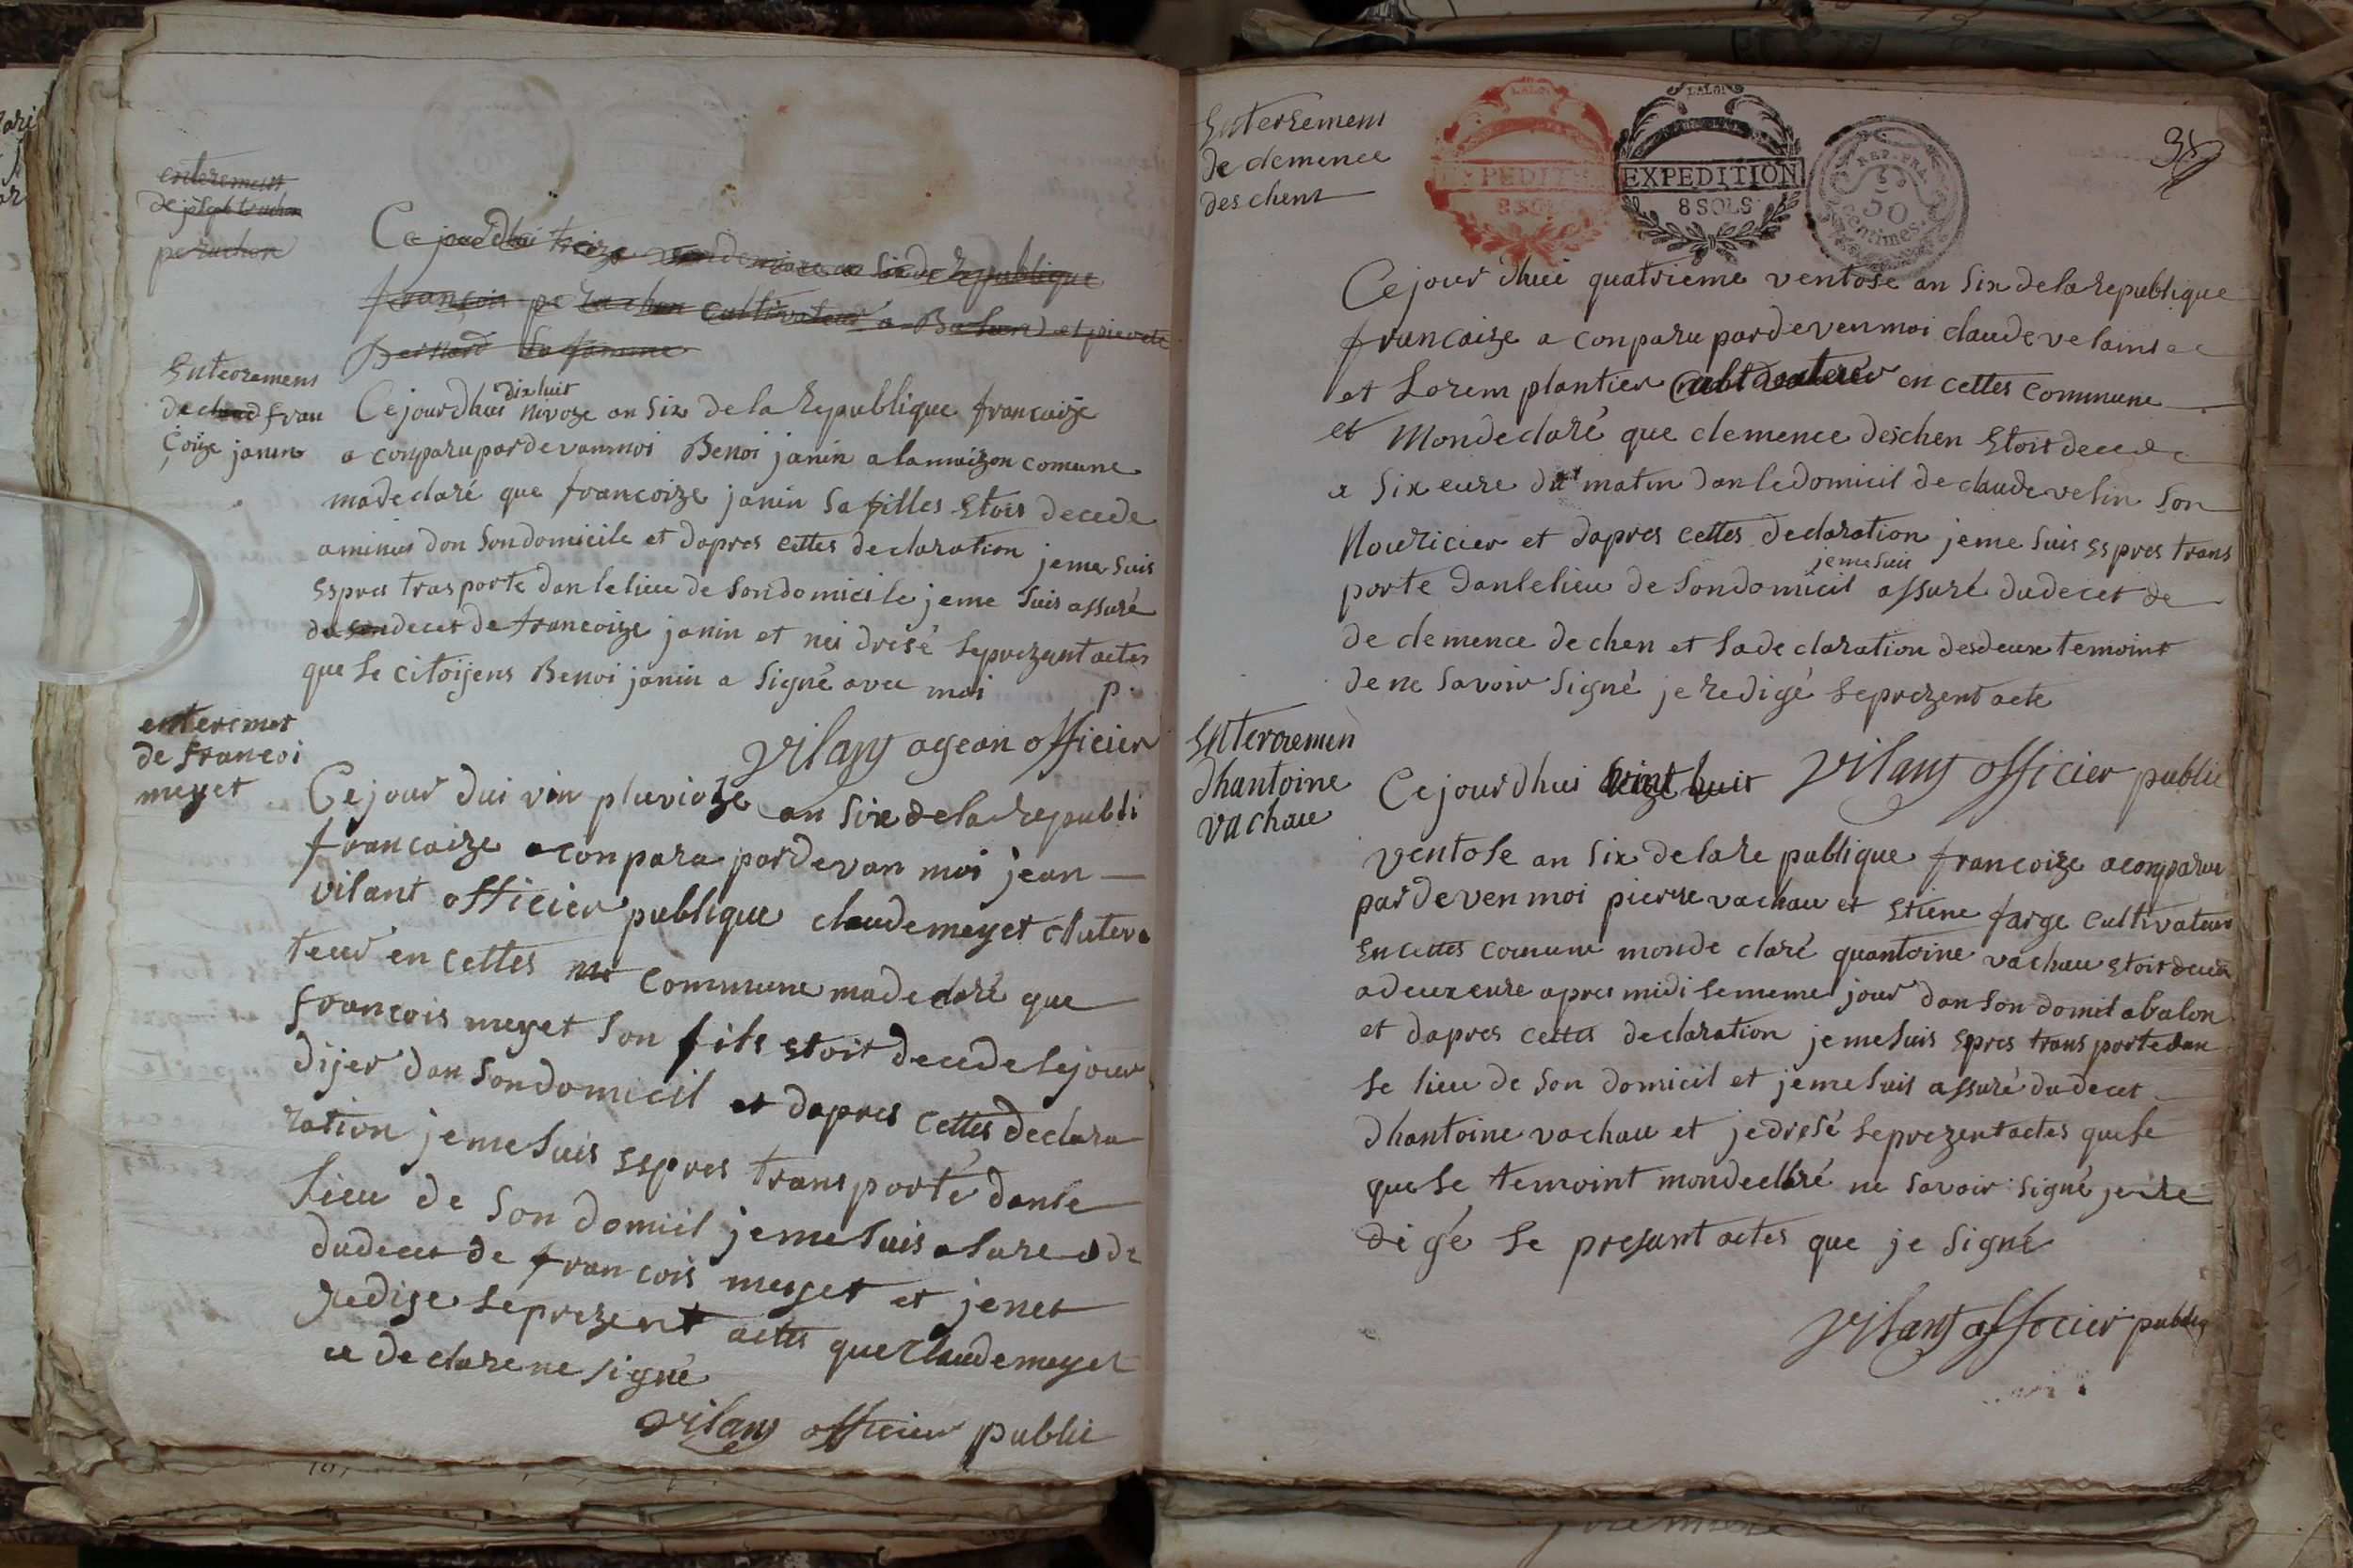 enteremens
de joseph
peruchon
Ce jourdhui treize vendemiaire an six de republique
francois peruchon cultivateur a et pierrete
Bernard sa famme
Enteoremens
de claud fran
çoize janin
Cejourdhui dixhuit nivoze an six de la Republique francaize
a conparu pardevanmoi Benoi janin a la maizon comune
madeclaré que francoize janin sa filles Etois decede
aminui don son domicile et dapres cettes declaration jeme suis
Espres trasporte dan le lieu de son domicile jeme suis assuré
du son deces de francoize janin et nei drisé seprezent actes
que se citoijens Benoi janin a signé avec moi p.
vilant agean officier
enteremet
de francoi
meyet
Cejour dui vin pluvioze an six de la republi
francaize a conparu pardevan moi jean
vilant officier publique claude meyet
teur en cettes commune madeclaré que
francois meyet son fils etoit decede sejour
dijer dan son domicil et dapres cettes declara
ration jemesuis espres transporté danle
lieu de son domicil jemesuis asure de
dudeces de francois meyet et jenet
redige seprezent actes que claude meyet
ce declare ne signé
vilant officier public
38
Enterremens
de clemence
deschent
LALOI
EXPEDITION
8 SOLS
LALOI
EXPEDITION
8 SOLS
REP. FRA.
50
Centimes
Cejour dhui quatrieme ventose an six de la republique
francaize a conparu pardevenmoi claude velain
et Lorem plantier en cettes commune
et Mondeclaré que clemence deschen Etoit decede
a six eure du matin dan le domicil de claude velin son
Nouricier et dapres cettes declaration jeme suis Espres trans
porte danlelieu de son domicil jemesuis assuré dudeces de
de clemence dechen et sa declaration desdeux temoint
de ne savoir signé je redigé seprezent acte
Vilant officier public
Enterremen
dhantoine
vachau
Cejourdhui vint huit
ventose an six de la re publique francoize aconparu
pardevenmoi pierre vachau et Etiene farge cultivateur
En cettes comune mondeclaré quantoine vachau Etoit decede
adeuxeure apres midi sememe jour dan son domil abalon
et dapres cettes declaration jemesuis Espres transportedan
se lieu de son domicil et jemesuis assuré dudeces
dhantoine vachau et jedresé seprezentactes quese
que se temoint mondeclaré ne savoir signé je re
digé se presant actes que je signé
vilant officier public